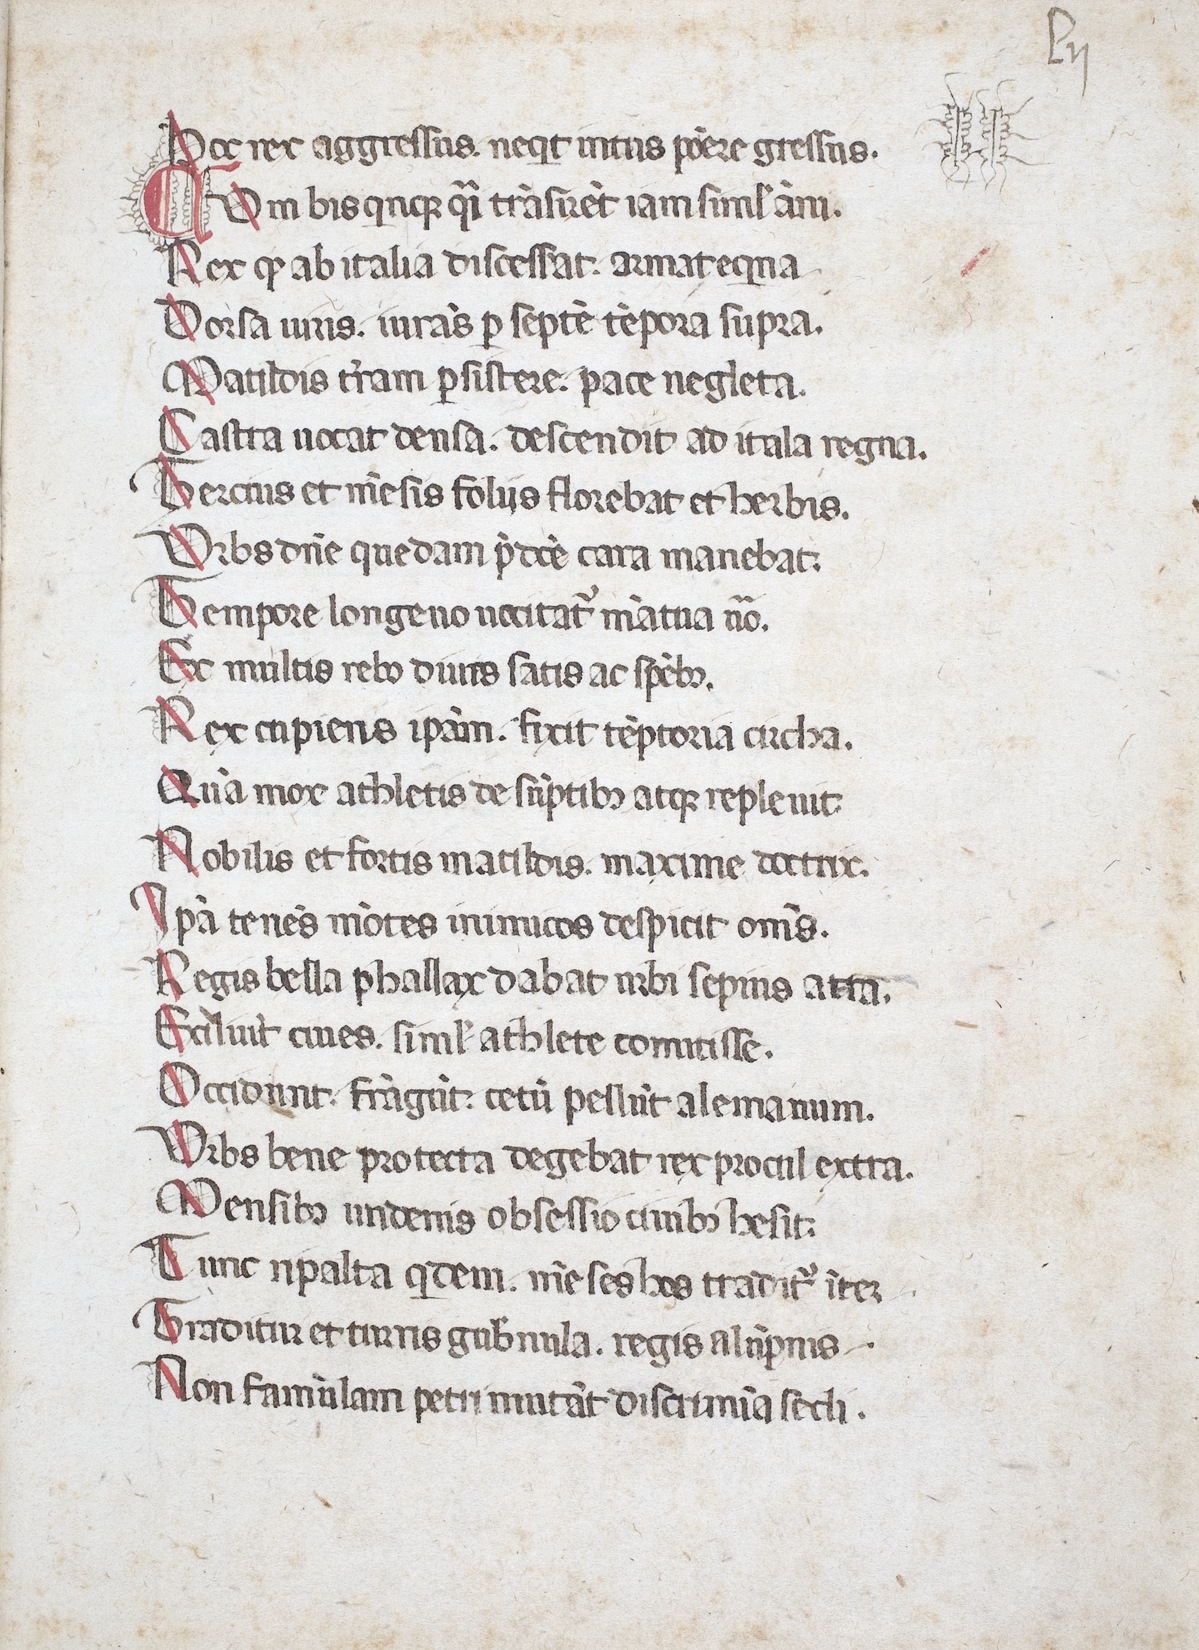 Lij
Mox rex aggressus. neqt intus pōere gressus.
Cum bis qnqꝫ qͣi trāsirēt iam simlˀ āni.
Rex qꝫ ab italia discessat. armat equa
Dorsa uiris. iurās ꝑ septē tēpora supra.
Matildis tr̄am ꝑsistere. pace negleta.
Castra uocat densa. descendit ad itala regna.
Tercius et mēsis folijs florebat et herbis.
Urbs dn̄e quedam p̄dcē cara manebat.
Tempore longeuo uocitatᷣ māťua nō.
Ex multis rebꝫ diuits satis ac spēbꝫ.
Rex cupiens ipām. fixit tēptoria circha.
Quā mox athletis de sūptibꝫ atqꝫ repleuit
Nobilis et fortis matildis. maxime doctrix.
Ipā tenēs mōtes inimicos despicit omēs.
Regis bella phallax dabat urbi sepius atta.
Exiluūt ciues. simlˀ athlete comitisse.
Occidunt. frāgūt. cetū pellūt alemanum.
Urbs bene protecta degebat rex procul extra.
Mensibꝫ undenis obsessio ciuibꝫ hesit.
Tunc ripalta qͥdem. mēses hos traditᷣ īter
Traditur et turris gub̄nula. regis alūpnis
Non famūlam petri mutāt discrimīa secli.